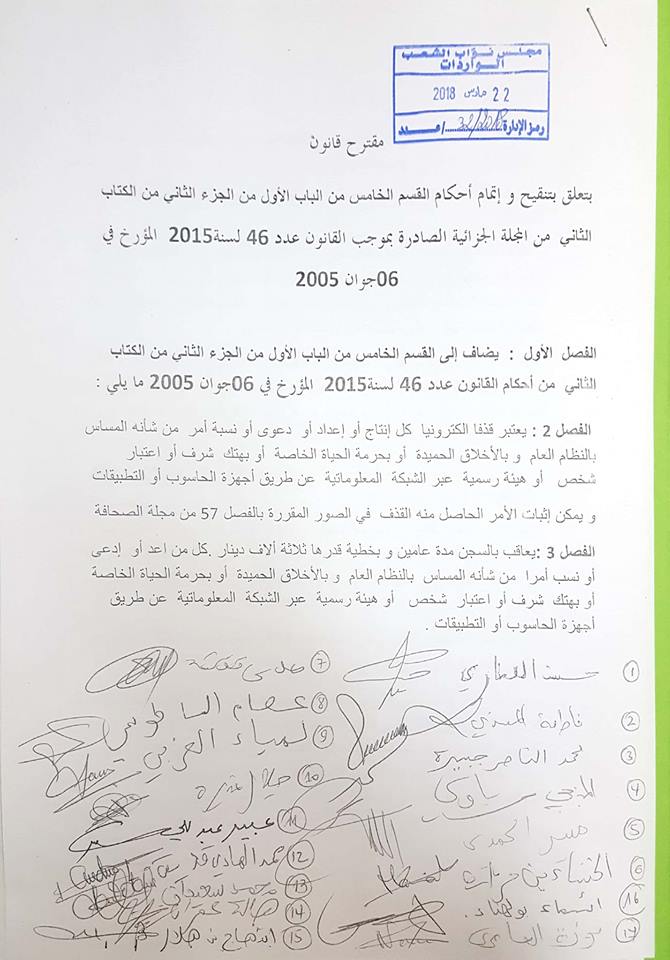 مجلس نواب الشعب
الواردات
22 مارس 2018
رمز الإدارة 32/2018 / عدد
مقترح قانون
بتعلق بتنقيح و إتمام أحكام القسم الخامس من الباب الأول من الجزء الثاني من الكتاب
الثاني من المجلة الجزائية الصادرة بموجب القانون عدد 46 لسنة2015 المؤرخ في
06جوان 2005
الفصل الأول : يضاف إلى القسم الخامس من الباب الأول من الجزء الثاني من الكتاب
الثاني من أحكام القانون عدد 46 لسنة2015 المؤرخ في 06جوان 2005 ما يلي :
الفصل 2 : يعتبر قذفا الكترونيا كل إنتاج أو إعداد أو دعوى أو نسبة أمر من شأنه المساس
بالنظام العام و بالأخلاق الحميدة أو بحرمة الحياة الخاصة أو بهتك شرف أو اعتبار
شخص أو هيئة رسمية عبر الشبكة المعلوماتية عن طريق أجهزة الحاسوب أو التطبيقات
و يمكن إثبات الأمر الحاصل منه القذف في الصور المقررة بالفصل 57 من مجلة الصحافة
الفصل 3 :يعاقب بالسجن مدة عامين و بخطية قدرها ثلاثة ألاف دينار .كل من اعد أو إدعى
أو نسب أمرا من شأنه المساس بالنظام العام و بالأخلاق الحميدة أو بحرمة الحياة الخاصة
أو بهتك شرف أو اعتبار شخص أو هيئة رسمية عبر الشبكة المعلوماتية عن طريق
أجهزة الحاسوب أو التطبيقات .
1
2 فاطمة المسدي
3 محمد الناصر جبيرة
4 المنجي
5
6 الخنساء بن حراث
16 أسماء بولهناء
17
7
8 عصام
9 لمياء الغربي
10 جلال غديرة
11 عبير عبدلي
12 محمد الهادي
13 محمد سعيدان
14 هالة عمران
15 ابتهاج بن هلال